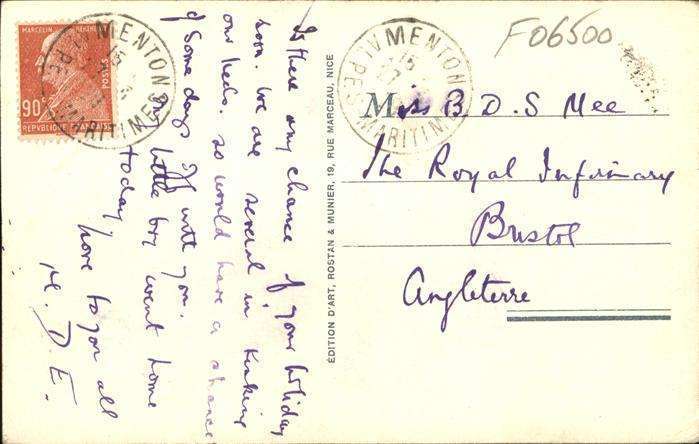 MARCELIN BERTHELOT
POSTES
90c
REPVBLIQVE FRANÇAISE
MENTON
15
ALPES MARITIMES
MENTON
15
ALPES MARITIMES
F06500
Is there any chance of your holiday
soon we are several in
our beds. so would have a chance
of some days off with you.
My little boy went home
today
love to you all
M. D. E.
ÉDITION D'ART, ROSTAN & MUNIER, 19, RUE MARCEAU, NICE
Miss B. D. S Mee
The Royal Infirmary
Bristol
Angleterre